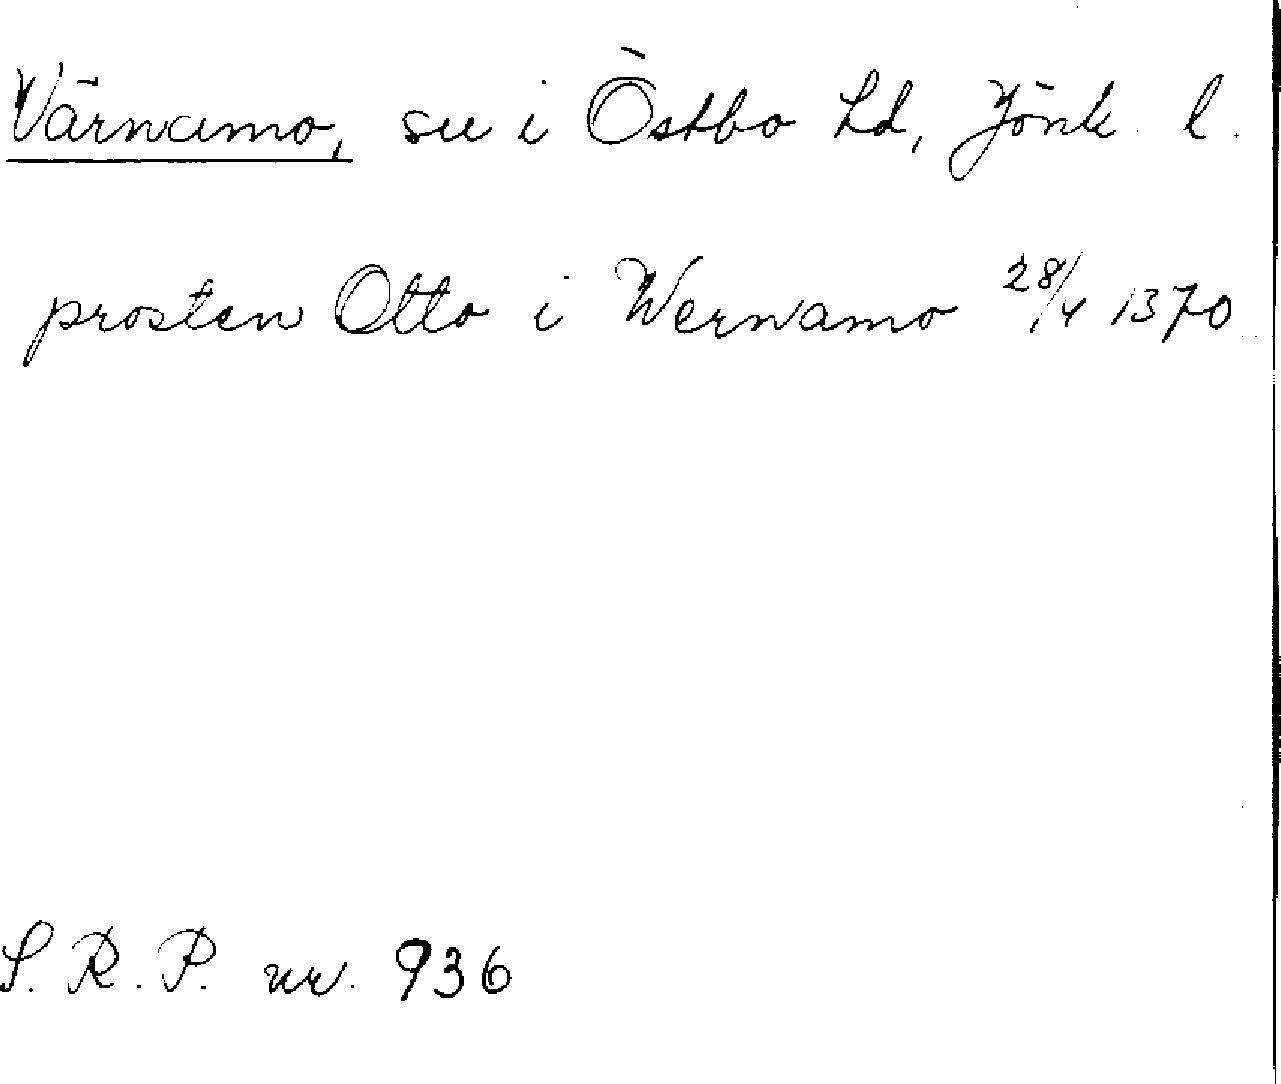 Värnamo, sn i Östbo hd, Jönk. l.
prosten Otto i Wernamo 28/4 1370
S. R. P. nr. 936